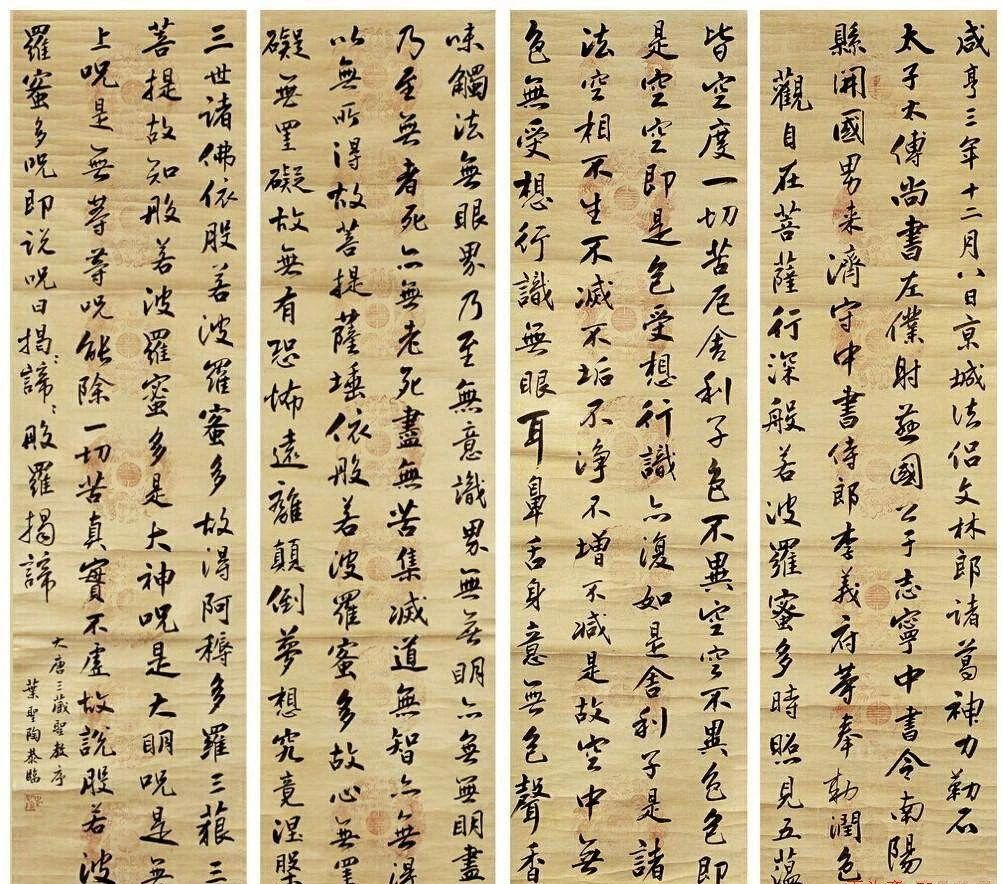 咸亨三年十二月八日京城法侣文林郎諸葛神力勒石
太子太傅尚書左僕射燕國公于志寧中書令南陽
縣開國男来濟守中書侍郎李義府等奉勅潤色
觀自在菩薩行深般若波羅蜜多時照見五蘊
皆空度一切苦厄舍利子色不異空空不異色色即
是空空即是色受想行識亦復如是舍利子是諸
法空相不生不滅不垢不淨不增不減是故空中無
色無受想行識無眼耳鼻舌身意無色聲香
味觸法無眼界乃至無意識界無無明亦無無明盡
乃至無老死亦無老死盡無苦集滅道無智亦無得
以無所得故菩提薩埵依般若波羅蜜多故心無罣
礙無罣礙故無有恐怖遠離顛倒夢想究竟涅槃
三世諸佛依般若波羅蜜多故得阿耨多羅三藐三
菩提故知般若波羅蜜多是大神呪是大明呪是無
上呪是無等等呪能除一切苦真實不虛故說般若波
羅蜜多呪即説呪曰揭:諦:般羅揭諦
大唐三藏聖教序
葉聖陶恭臨